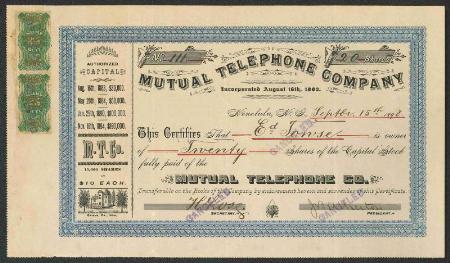 AUTHORIZED
CAPITAL
Aug. 16th, 1883, $30,000.
1884, $50,000.
1890, $100,000.
Nov. 12th, 1894, $150,000.
M. T. Co.
15,000 SHARES
$10 EACH.
No. 111
20 Shares
MUTUAL TELEPHONE COMPANY
Incorporated August 16th, 1883.
Honolulu, H. I. Septbr 15th 1898
This Certifies That Ed Towse is owner
of Twenty Shares of the Capital Stock
fully paid of the
MUTUAL TELEPHONE CO.
Transferable on the Books of the Company by endorsement hereon and surrender of this Certificate.
CANCELLED
CANCELLED
SECRETARY.
PRESIDENT.